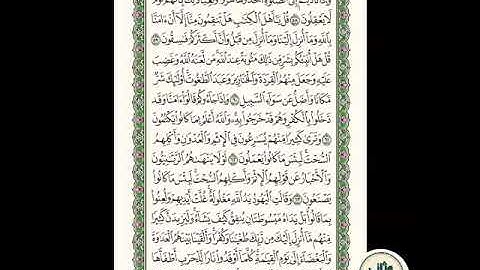 وَإِذَا نَادَيْتُمْ إِلَى ٱلصَّلَوٰةِ ٱتَّخَذُوهَا هُزُوًا وَلَعِبًا ذَٰلِكَ بِأَنَّهُمْ قَوْمٌ
لَّا يَعْقِلُونَ ٥٨ قُلْ يَٰٓأَهْلَ ٱلْكِتَٰبِ هَلْ تَنقِمُونَ مِنَّآ إِلَّآ أَنْ ءَامَنَّا
بِٱللَّهِ وَمَآ أُنزِلَ إِلَيْنَا وَمَآ أُنزِلَ مِن قَبْلُ وَأَنَّ أَكْثَرَكُمْ فَٰسِقُونَ ٥٩
قُلْ هَلْ أُنَبِّئُكُم بِشَرٍّ مِّن ذَٰلِكَ مَثُوبَةً عِندَ ٱللَّهِ مَن لَّعَنَهُ ٱللَّهُ وَغَضِبَ
عَلَيْهِ وَجَعَلَ مِنْهُمُ ٱلْقِرَدَةَ وَٱلْخَنَازِيرَ وَعَبَدَ ٱلطَّٰغُوتَ أُو۟لَٰٓئِكَ شَرٌّ
مَّكَانًا وَأَضَلُّ عَن سَوَآءِ ٱلسَّبِيلِ ٦٠ وَإِذَا جَآءُوكُمْ قَالُوٓا۟ ءَامَنَّا وَقَد
دَّخَلُوا۟ بِٱلْكُفْرِ وَهُمْ قَدْ خَرَجُوا۟ بِهِۦ وَٱللَّهُ أَعْلَمُ بِمَا كَانُوا۟ يَكْتُمُونَ
٦١ وَتَرَىٰ كَثِيرًا مِّنْهُمْ يُسَٰرِعُونَ فِى ٱلْإِثْمِ وَٱلْعُدْوَٰنِ وَأَكْلِهِمُ
ٱلسُّحْتَ لَبِئْسَ مَا كَانُوا۟ يَعْمَلُونَ ٦٢ لَوْلَا يَنْهَىٰهُمُ ٱلرَّبَّٰنِيُّونَ
وَٱلْأَحْبَارُ عَن قَوْلِهِمُ ٱلْإِثْمَ وَأَكْلِهِمُ ٱلسُّحْتَ لَبِئْسَ مَا كَانُوا۟
يَصْنَعُونَ ٦٣ وَقَالَتِ ٱلْيَهُودُ يَدُ ٱللَّهِ مَغْلُولَةٌ غُلَّتْ أَيْدِيهِمْ وَلُعِنُوا۟
بِمَا قَالُوا۟ بَلْ يَدَاهُ مَبْسُوطَتَانِ يُنفِقُ كَيْفَ يَشَآءُ وَلَيَزِيدَنَّ كَثِيرًا
مِّنْهُم مَّآ أُنزِلَ إِلَيْكَ مِن رَّبِّكَ طُغْيَٰنًا وَكُفْرًا وَأَلْقَيْنَا بَيْنَهُمُ ٱلْعَدَٰوَةَ
وَٱلْبَغْضَآءَ إِلَىٰ يَوْمِ ٱلْقِيَٰمَةِ كُلَّمَآ أَوْقَدُوا۟ نَارًا لِّلْحَرْبِ أَطْفَأَهَا